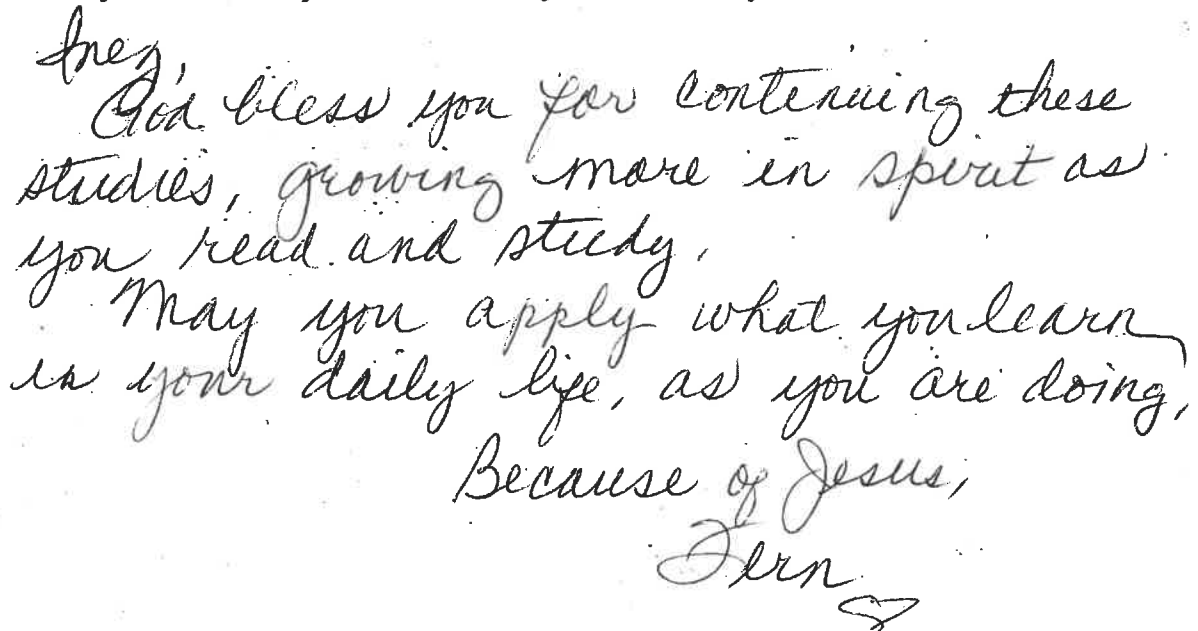 Inez,
God bless you for continuing these
studies, growing more in spirit as
you read and study.
May you apply what you learn
in your daily life, as you are doing,
Because of Jesus,
Fern